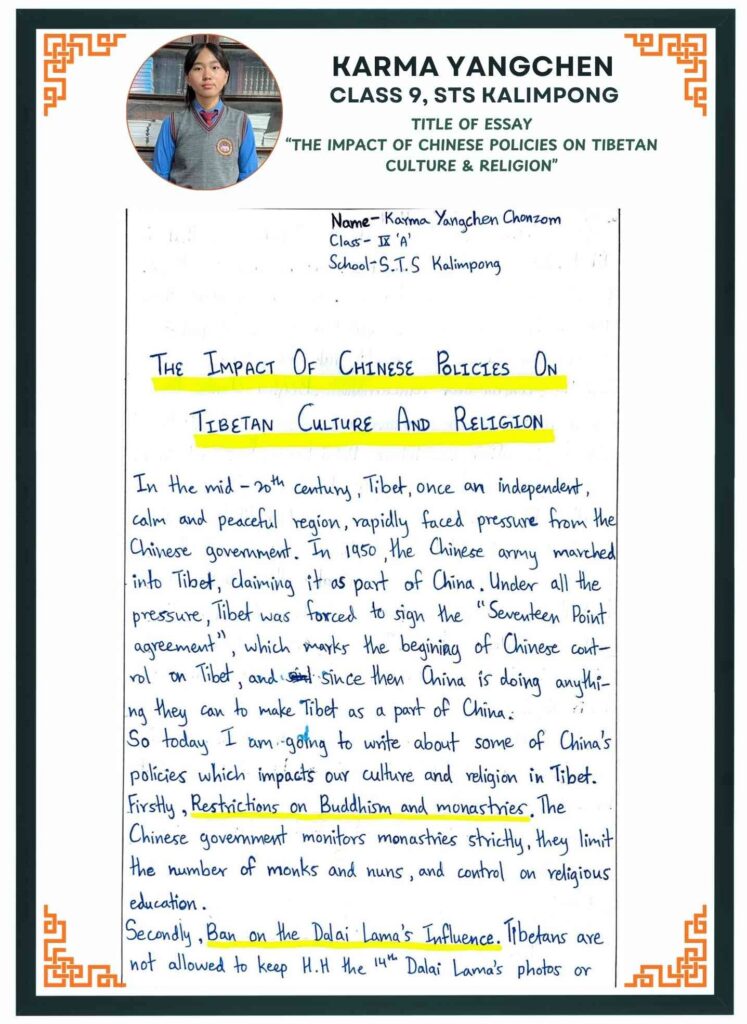 KARMA YANGCHEN
CLASS 9, STS KALIMPONG
TITLE OF ESSAY
"THE IMPACT OF CHINESE POLICIES ON TIBETAN
CULTURE & RELIGION"
Name- Karma Yangchen Chonzom
Class- IX 'A'
School-S.T.S Kalimpong
THE IMPACT OF CHINESE POLICIES ON
TIBETAN CULTURE AND RELIGION
In the mid-20th century, Tibet, once an independent,
calm and peaceful region, rapidly faced pressure from the
Chinese government. In 1950, the Chinese army marched
into Tibet, claiming it as part of China. Under all the
pressure, Tibet was forced to sign the "Seventeen Point
agreement", which marks the begining of Chinese cont-
rol on Tibet, and since then China is doing anythi-
ng they can to make Tibet as a part of China.
So today I am going to write about some of China's
policies which impacts our culture and religion in Tibet.
Firstly, Restrictions on Buddhism and monastries. The
Chinese government monitors monastries strictly, they limit
the number of monks and nuns, and control on religious
education.
Secondly, Ban on the Dalai Lama's Influence. Tibetans are
not allowed to keep H.H the 14th Dalai Lama's photos or